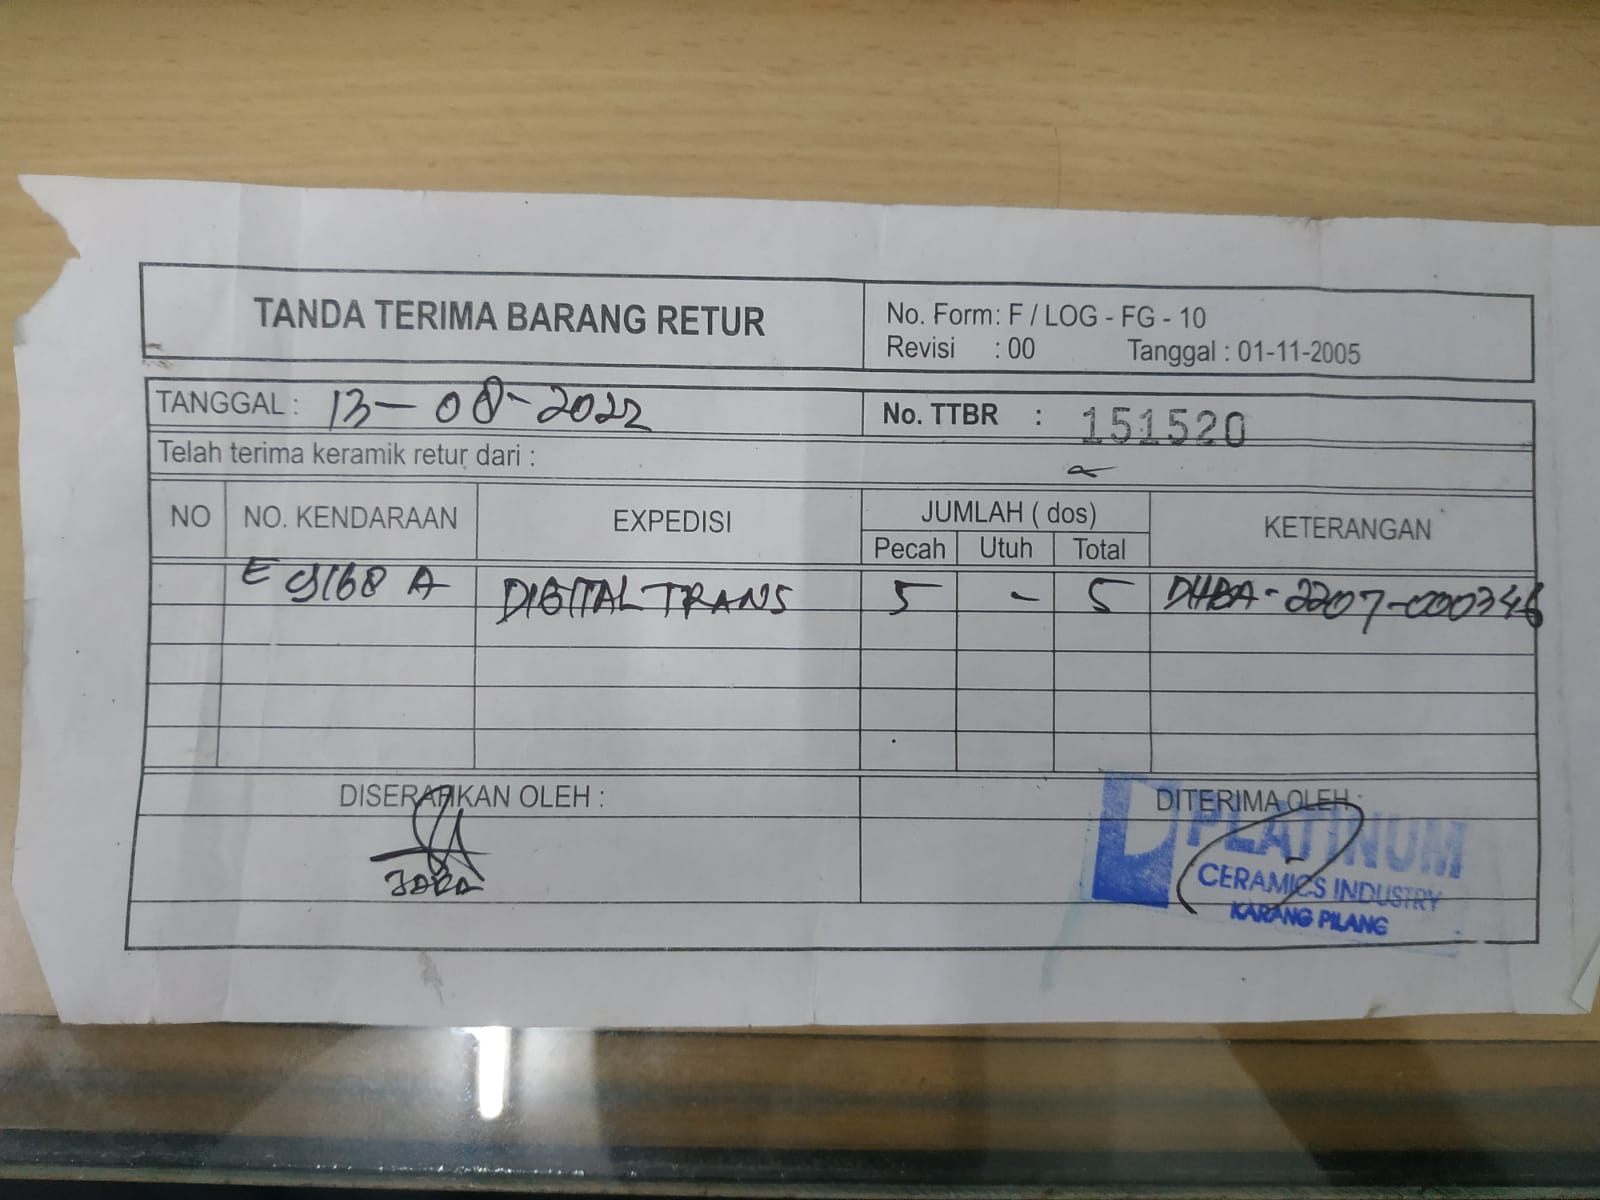 TANDA TERIMA BARANG RETUR
No. Form: F / LOG - FG - 10
Revisi : 00 Tanggal : 01-11-2005
TANGGAL : 13-08-2022 No. TTBR : 151520
Telah terima keramik retur dari :
NO NO. KENDARAAN EXPEDISI JUMLAH ( dos) KETERANGAN
Pecah Utuh Total
E 9160 A DIGITAL TRANS 5 - 5 DHBA-2207-000346
DISERAHKAN OLEH : DITERIMA OLEH :
PLATINUM
CERAMICS INDUSTRY
KARANG PILANG